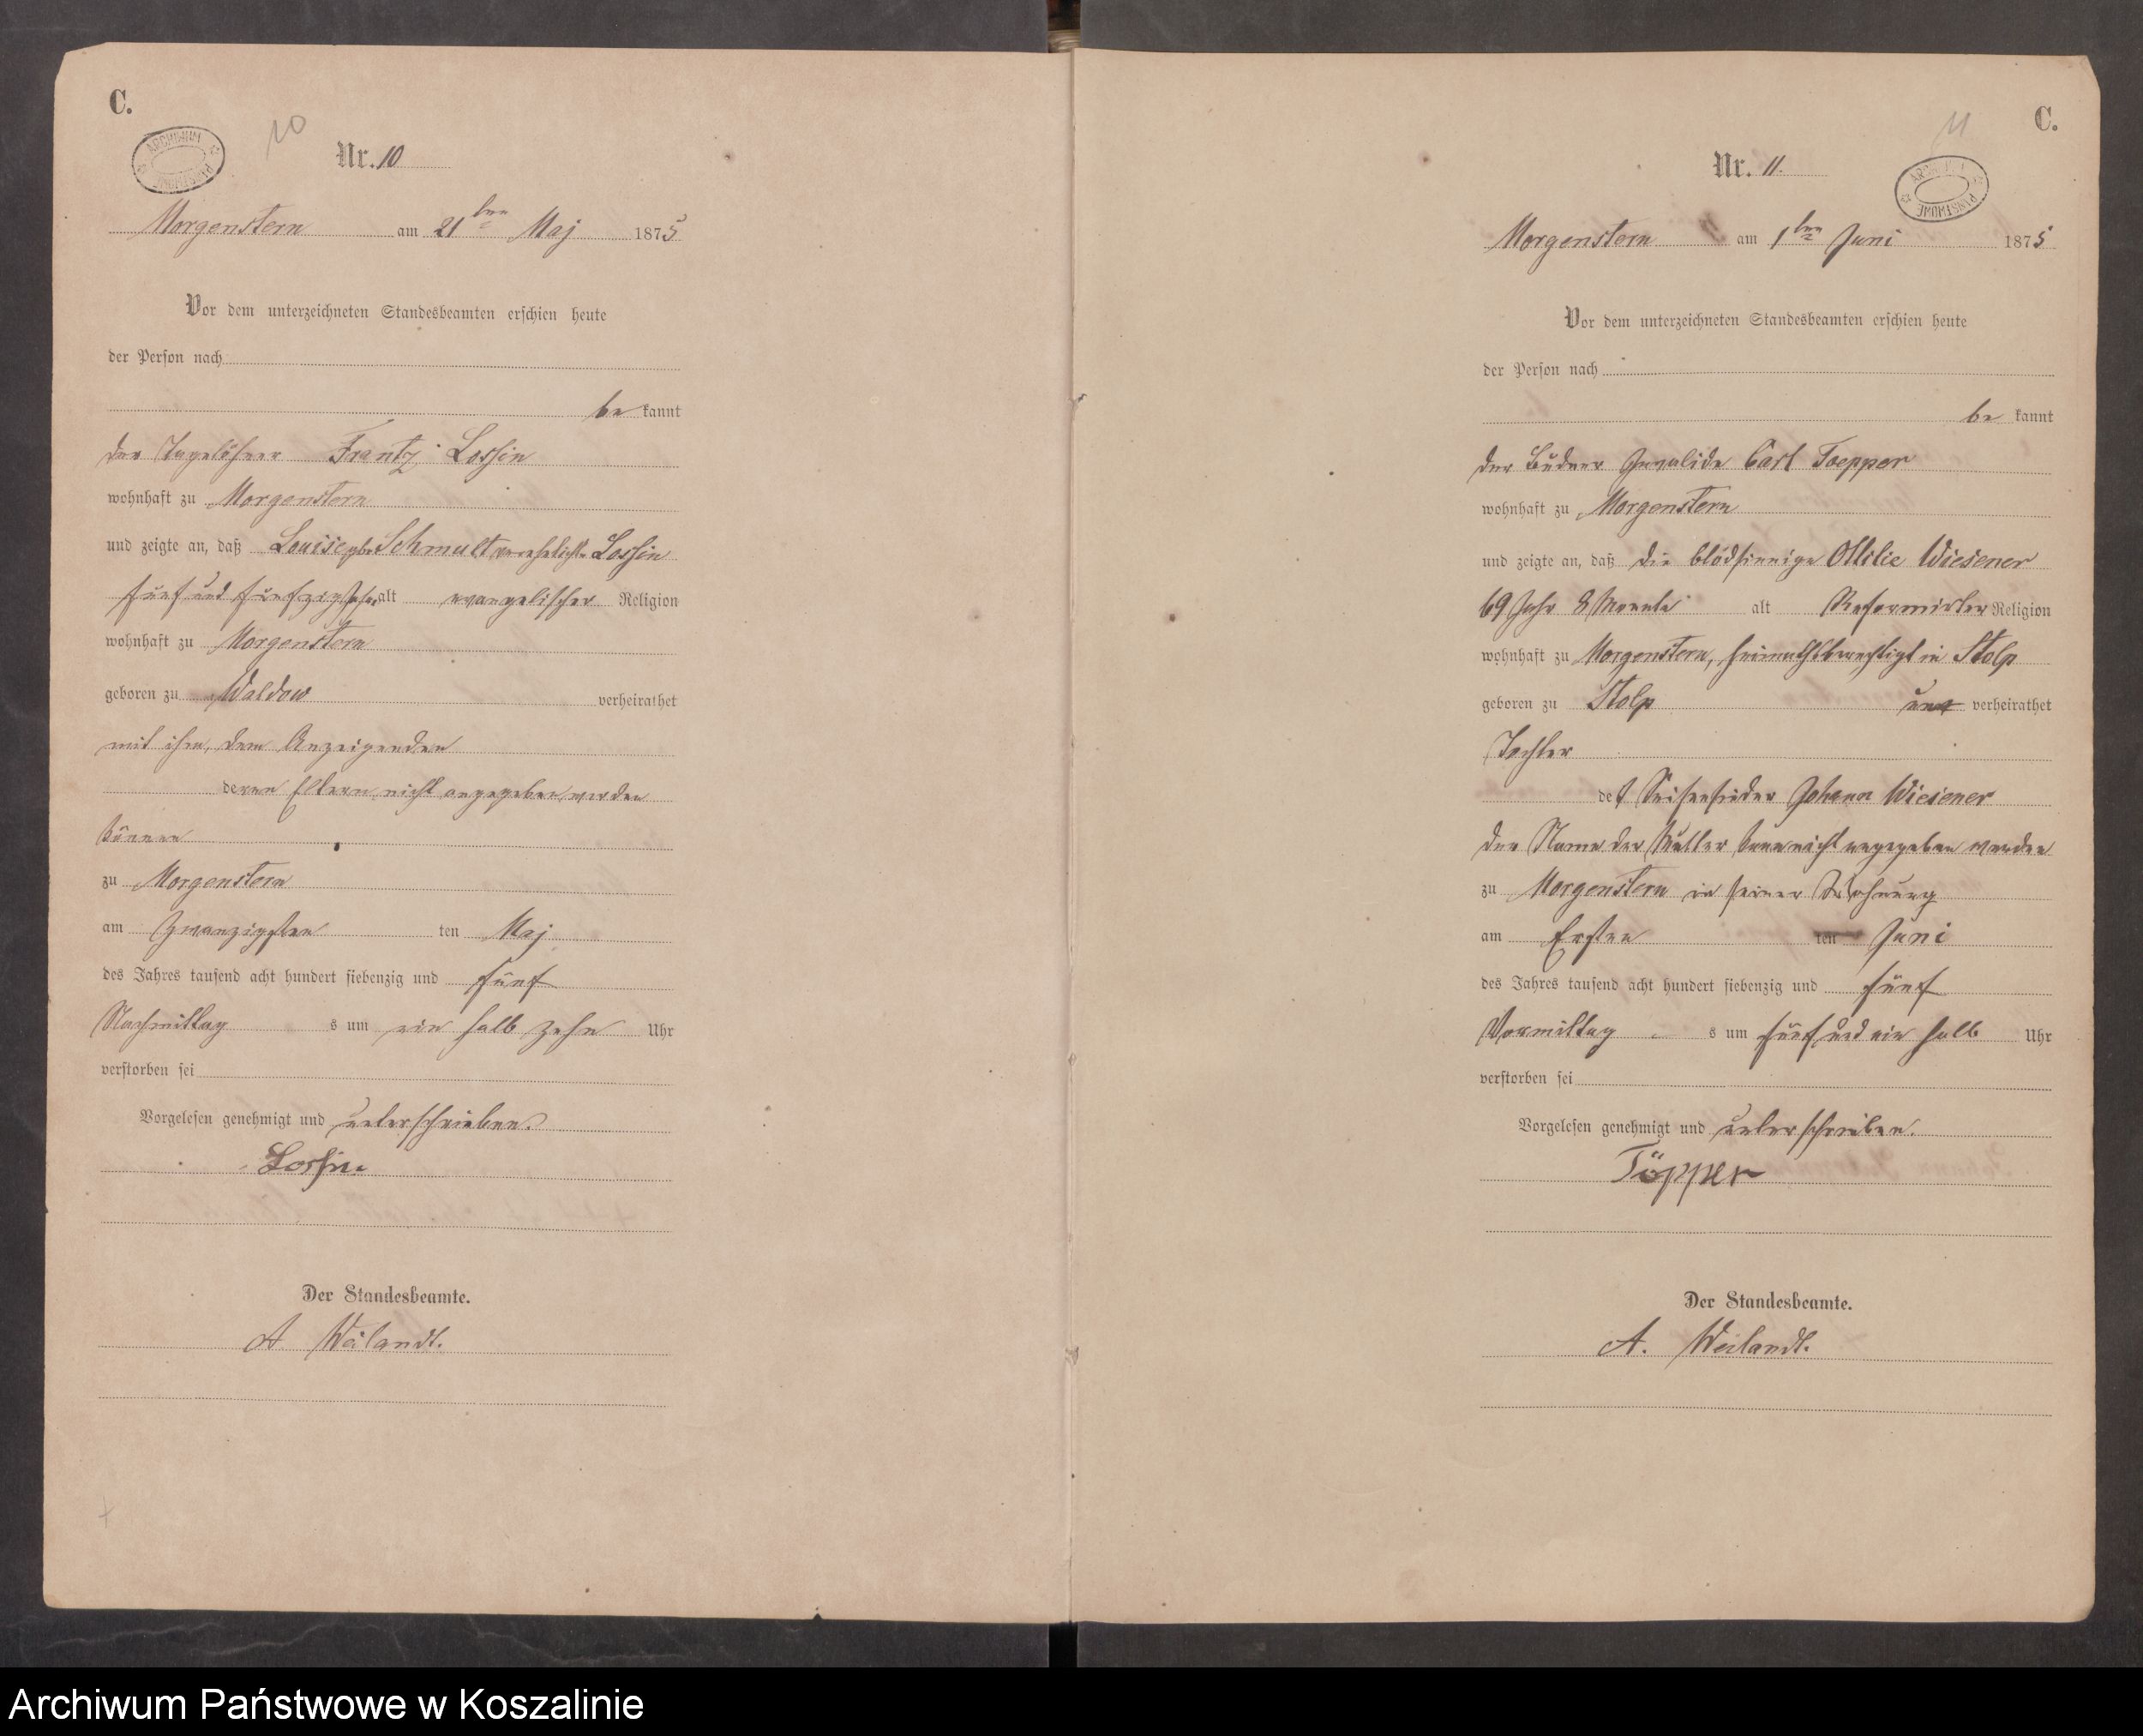 C.
ARCHIWUM PAŃSTWOWE
10
Nr. 10
Morgenstern am 21ten Maj 1875
Vor dem unterzeichneten Standesbeamten erschien heute
der Person nach
be kannt
der Tagelöhner Frantz Lossin
wohnhaft zu Morgenstern
und zeigte an, daß Louise geb. Schmult verehelichte Lossin
fünf und fünfzig Jahr alt evangelischer Religion
wohnhaft zu Morgenstern
geboren zu Waldow verheirathet
mit ihm, dem Anzeigenden
deren Eltern nicht angegeben werden
können
zu Morgenstern
am Zwanzigsten ten Maj
des Jahres tausend acht hundert siebenzig und fünf
Nachmittag s um ein halb zehn Uhr
verstorben sei
Vorgelesen genehmigt und unterschrieben.
Lossin
Der Standesbeamte.
A. Weilandt.
C.
11
ARCHIWUM PAŃSTWOWE
Nr. 11.
Morgenstern am 1ten Juni 1875
Vor dem unterzeichneten Standesbeamten erschien heute
der Person nach
be kannt
der Büdner Invalide Carl Toepper
wohnhaft zu Morgenstern
und zeigte an, daß die blödsinnige Ottilie Wiesener
69 Jahr 8 Monate alt Reformirter Religion
wohnhaft zu Morgenstern, heimathsberechtigt in Stolp
geboren zu Stolp un verheirathet
Tochter
des Seifensieder Johann Wiesener
der Name der Mutter kann nicht angegeben werden
zu Morgenstern in seiner Wohnung
am Ersten ten Juni
des Jahres tausend acht hundert siebenzig und fünf
Vormittag s um fünf und ein halb Uhr
verstorben sei
Vorgelesen genehmigt und unterschrieben.
Töpper
Der Standesbeamte.
A. Weilandt.
Archiwum Państwowe w Koszalinie